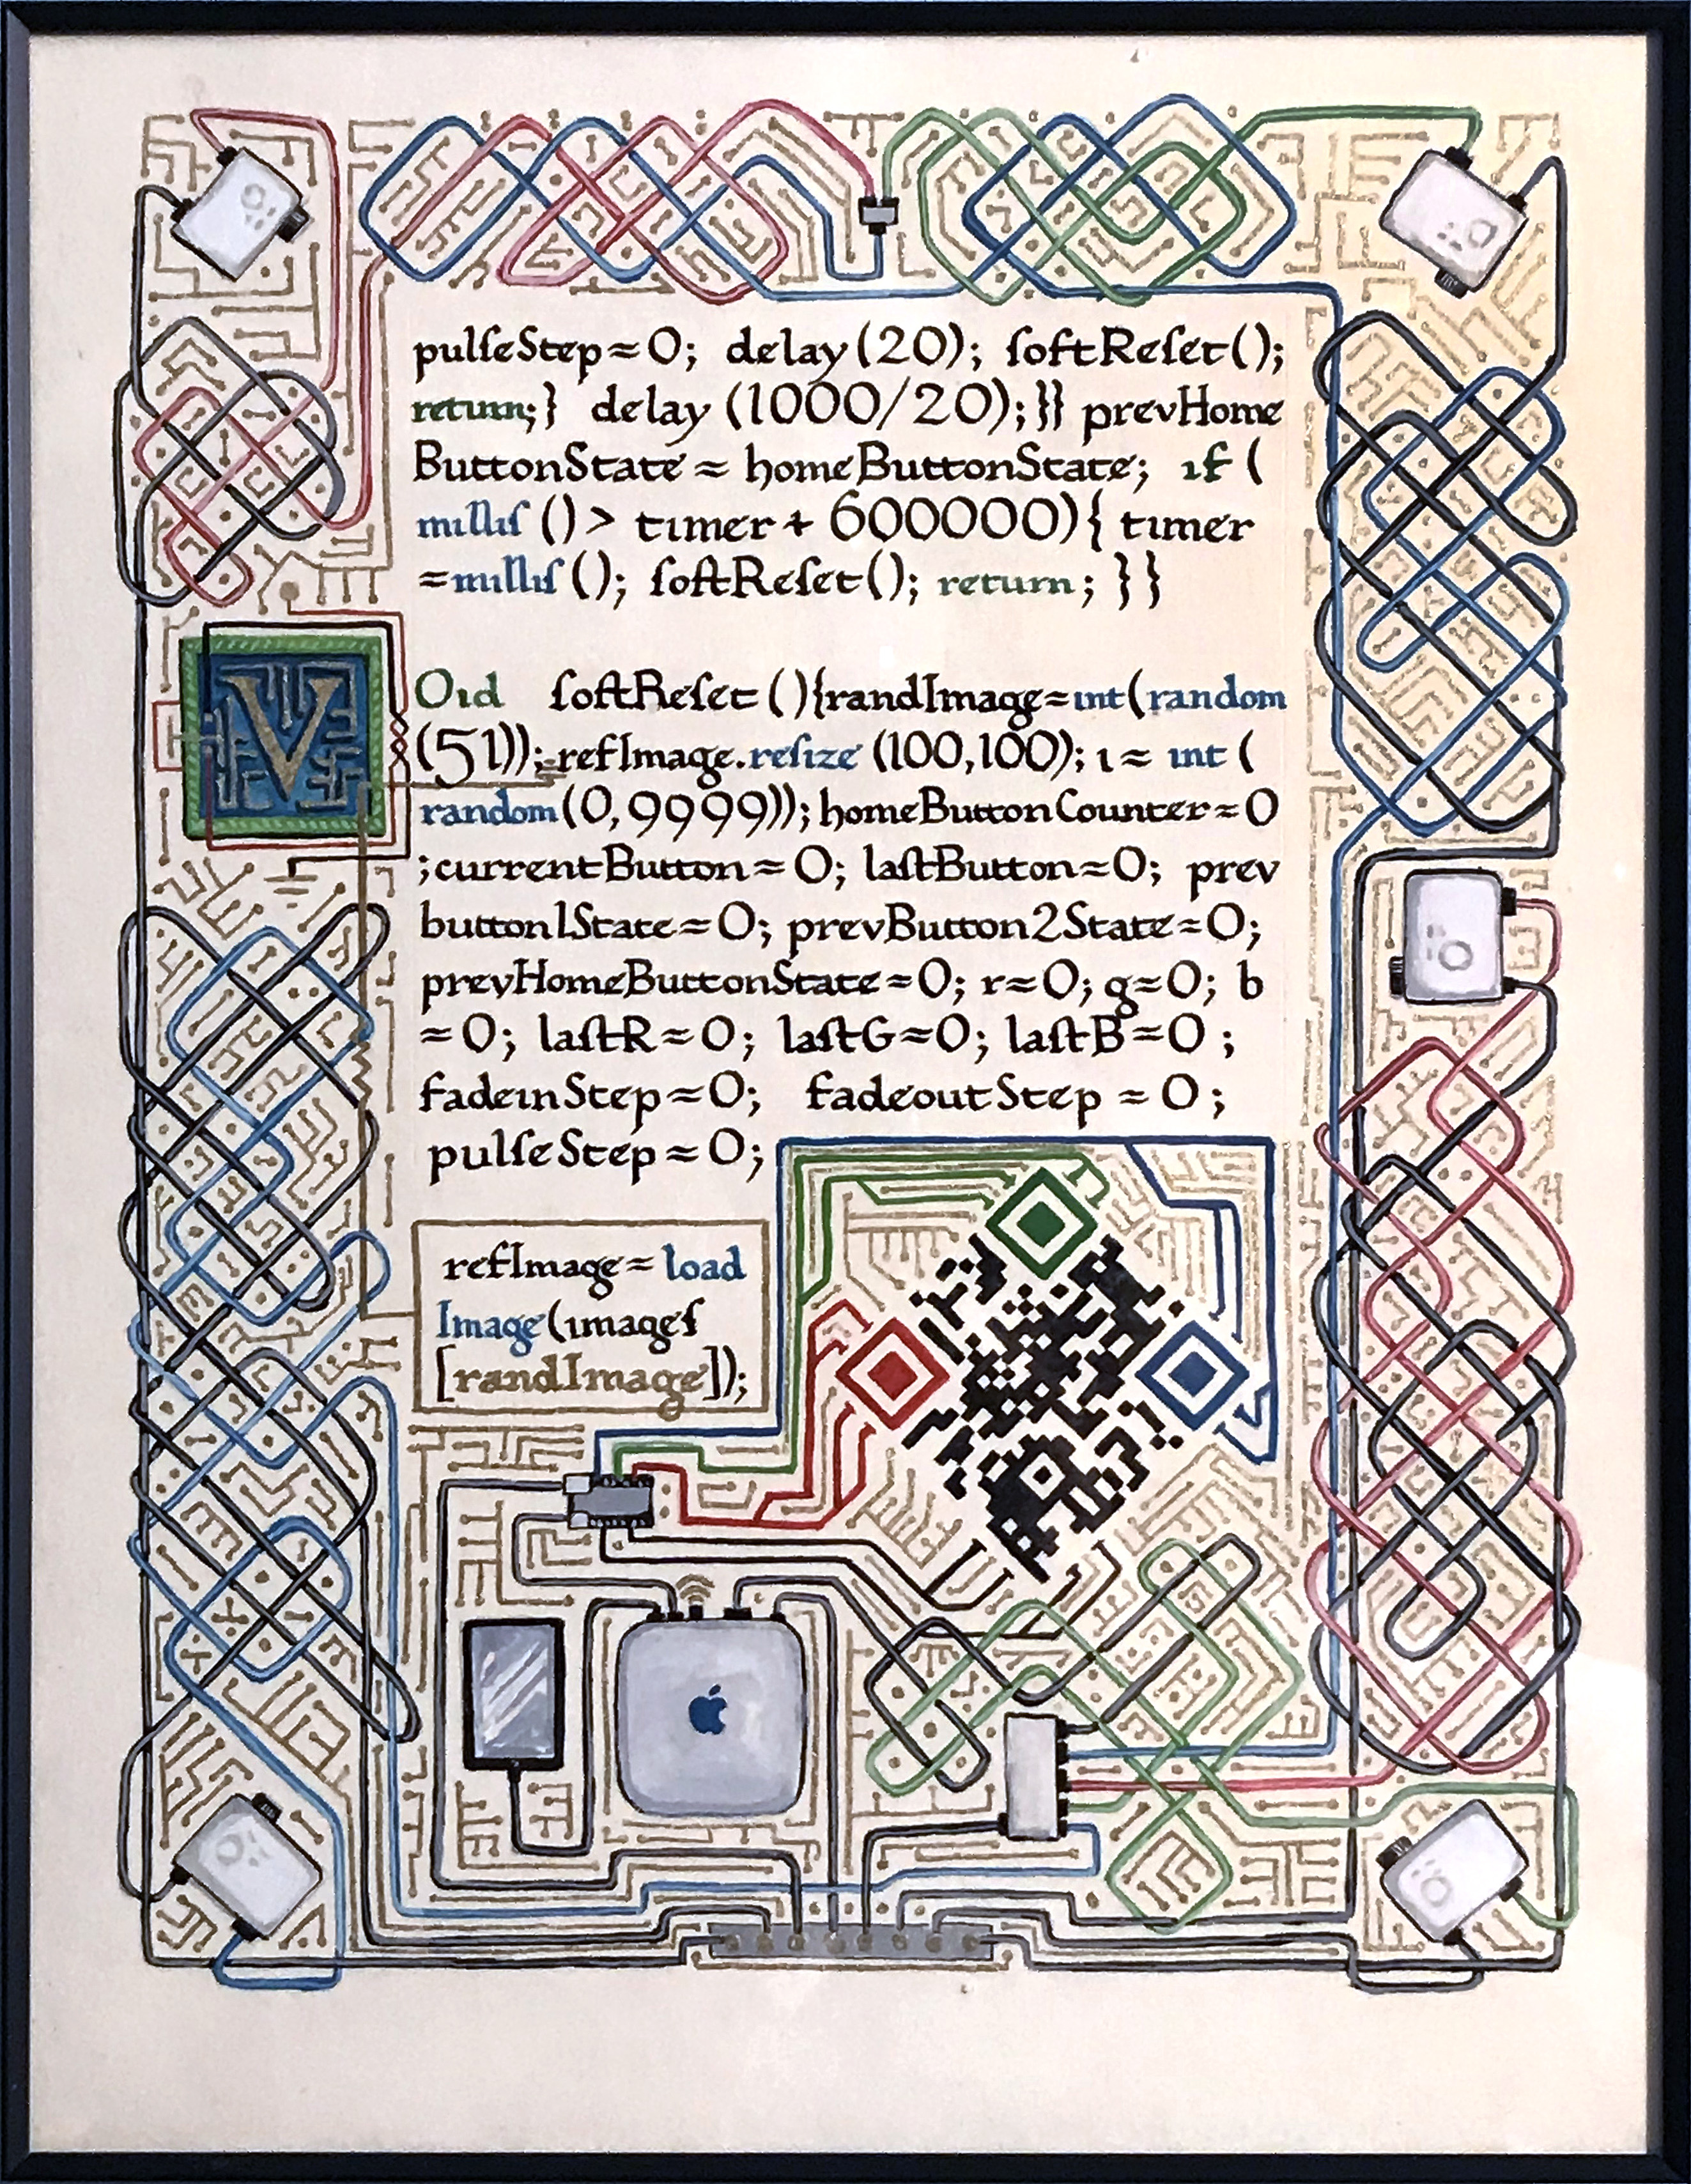 pulſeStep≈0; delay(20); ſoftReſet();
return;} delay (1000/20);}} prevHome
ButtonState ≈ homeButtonState; if (
millıſ () > timer + 600000){ timer
=millıſ(); ſoftReſet(); return; }}
VOıd ſoftReſet (){randImage=int(random
(51)); refImage.reſize (100,100); ı ≈ int (
random(0,9999)); homeButtonCounter≈0
;currentButton≈0; laſtButton≈0; prev
button1State≈0; prevButton2State≈0;
prevHomeButtonState≈0; r≈0; g≈0; b
≈0; laſtR≈0; laſtG≈0; laſtB≈0;
fadeinStep≈0; fadeoutStep ≈ 0;
pulſeStep≈0;
refImage≈ load
Image(ımageſ
[randImage]);